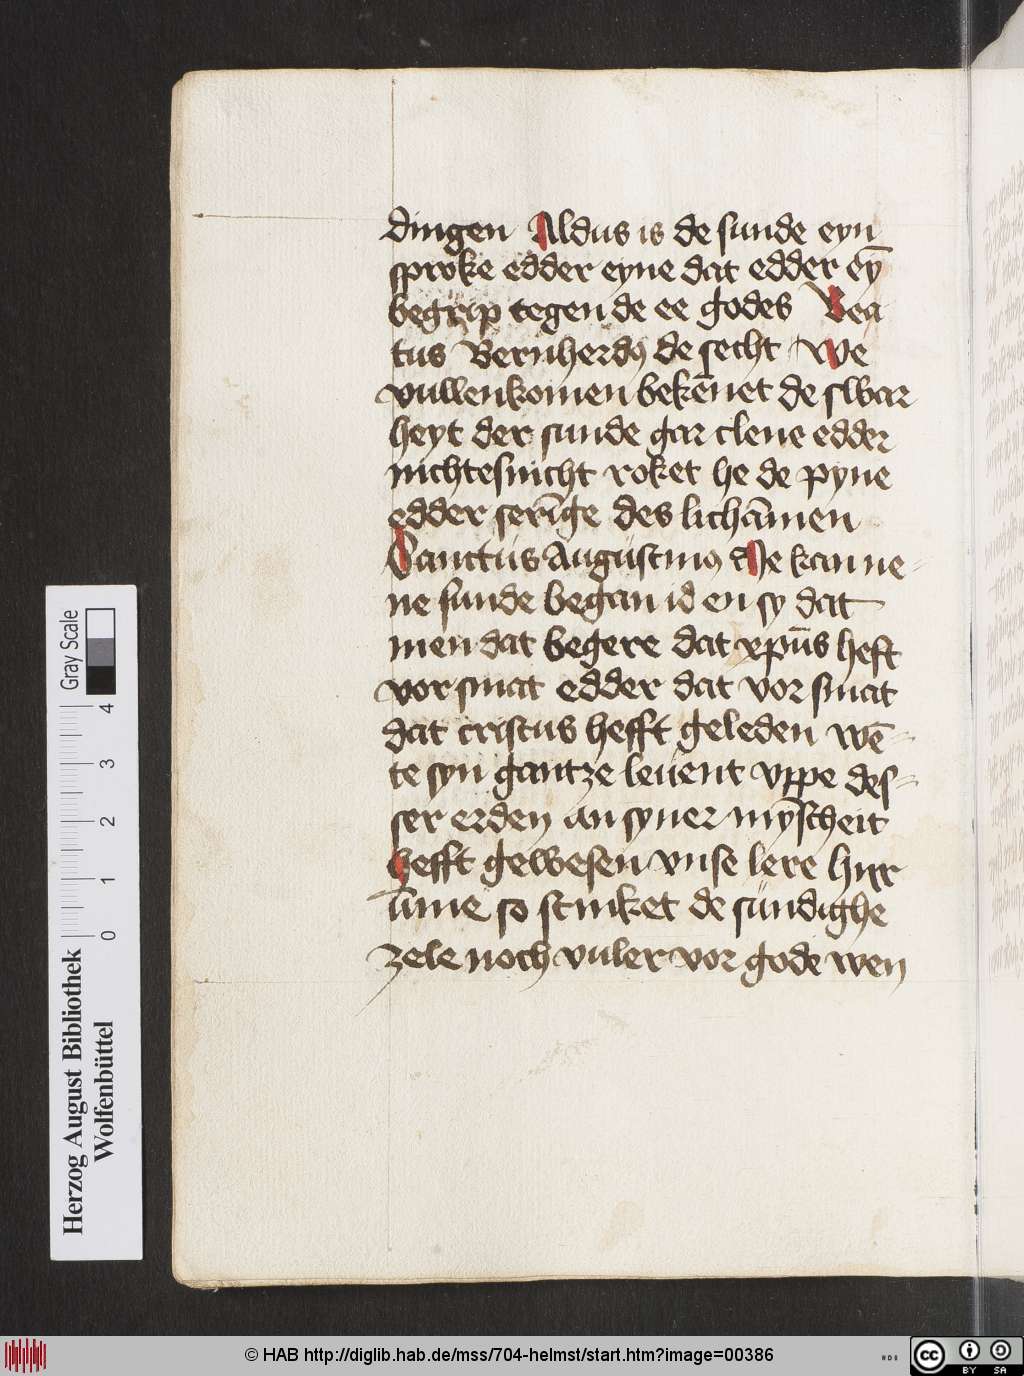 dingen Aldus is de sunde eyn
sproke edder eyne dat edder eȳ
begrip tegen de ee godes Bea
tus Bernherdꝰ de secht We
vullenkomen bekēnet de swar
heyt der sunde gar clene edder
nichtesnicht roket he de pyne
edder serīge des lichāmen
Sanctus Augustinꝰ Me kan ne-
ne sunde began id en sy dat
men dat begere dat xp̄us heft
vor smat edder dat vor smat
dat cristus hefft geleden wē-
te syn gantze leuent vppe des-
ser erden an syner mȳscheit
hefft gewesen vnse lere hirr
ūme so stinket de sundighe
zele noch vuler vor gode wen
Herzog August Bibliothek
Wolfenbüttel
Gray Scale
0 1 2 3 4
© HAB http://diglib.hab.de/mss/704-helmst/start.htm?image=00386
cc BY SA